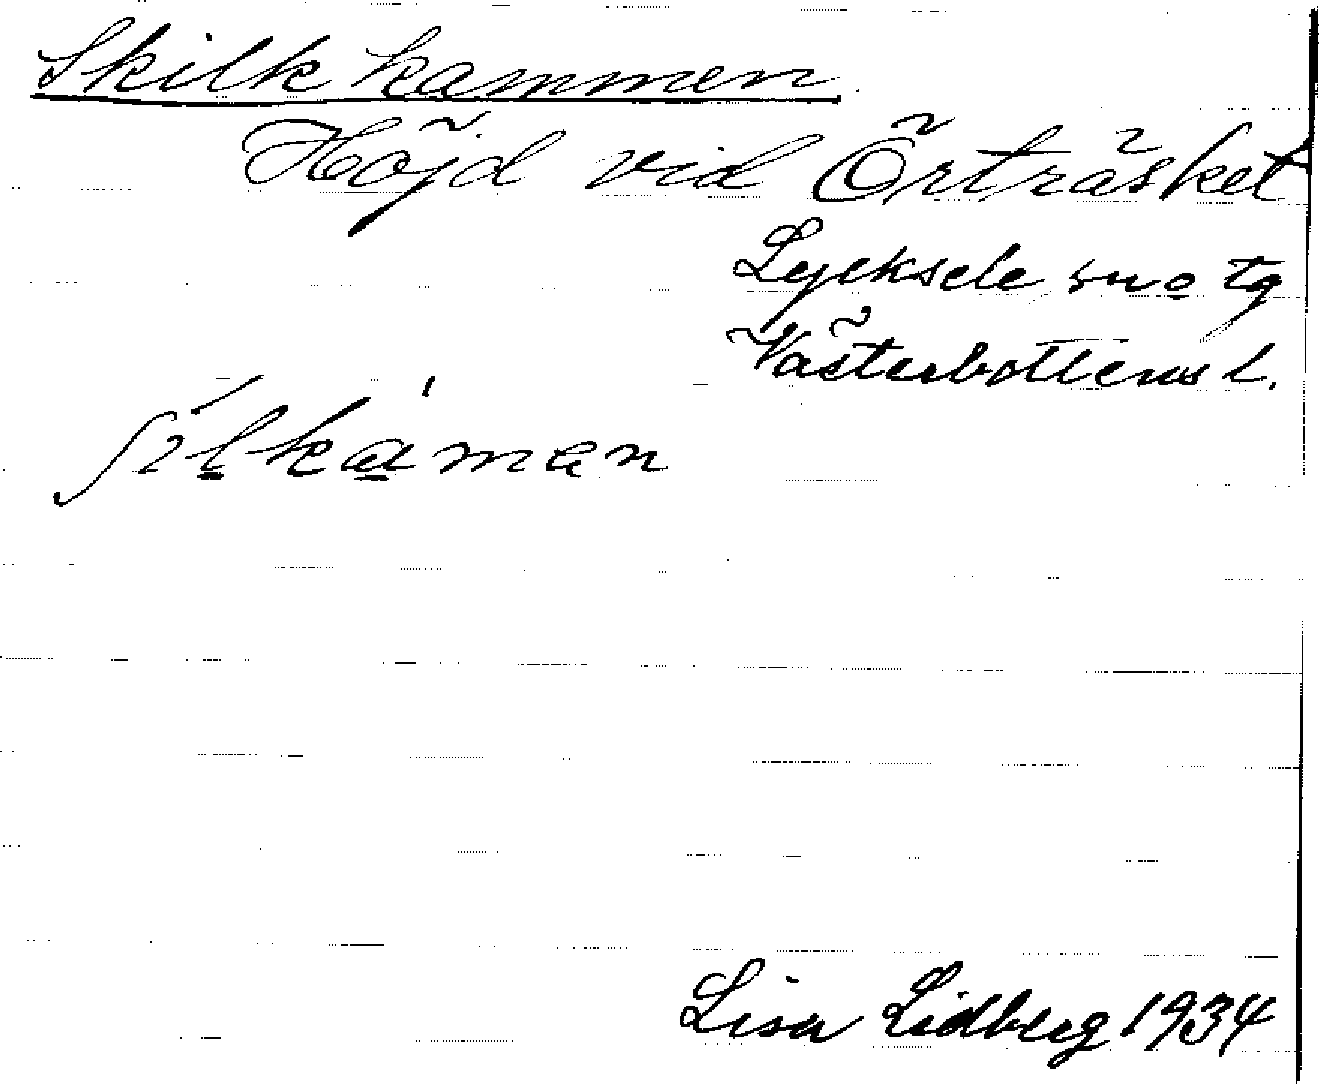 Skilkkammen
Höjd vid Örträsket
Lycksele sn o tg
Västerbottens l.
ʃìl̠ka̠̍man
Lisa Lidberg 1934